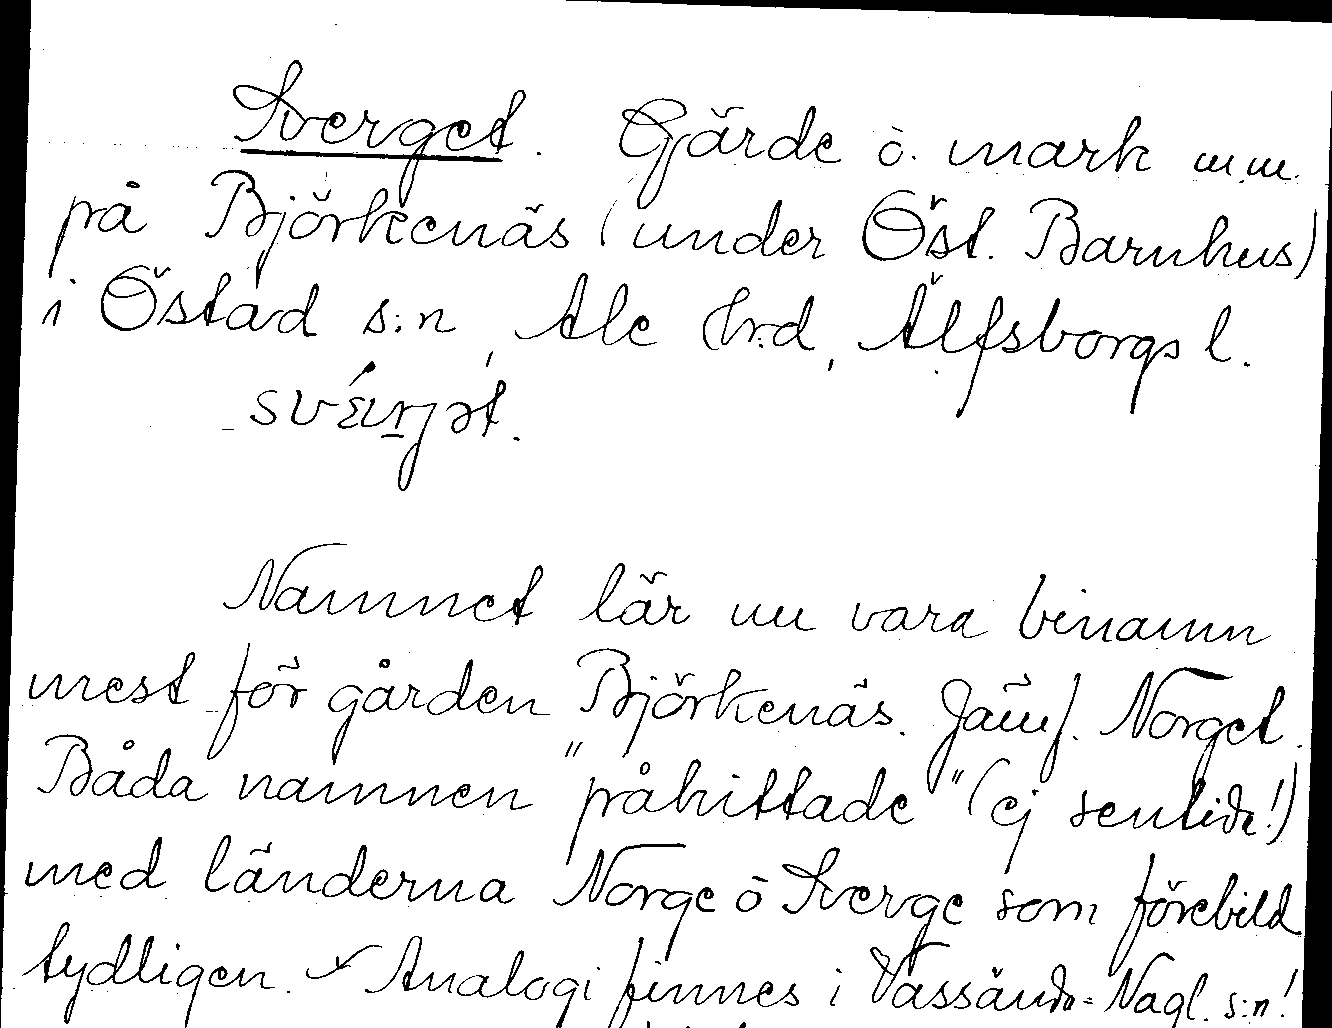 Sverget. Gärde o. mark m.m.
på Björkenäs (under Öst. Barnhus)
i Östad s:n, Ale hrd, Älfsborgs l.
Namnet lär nu vara binamn
mest för gården Björkenäs. Jämf. Norget.
Båda namnen "påhittade" (ej sentida!)
med länderna Norge o Sverge som förebild
tydligen. Analogi finnes i Vassända-Nagl. s:n!